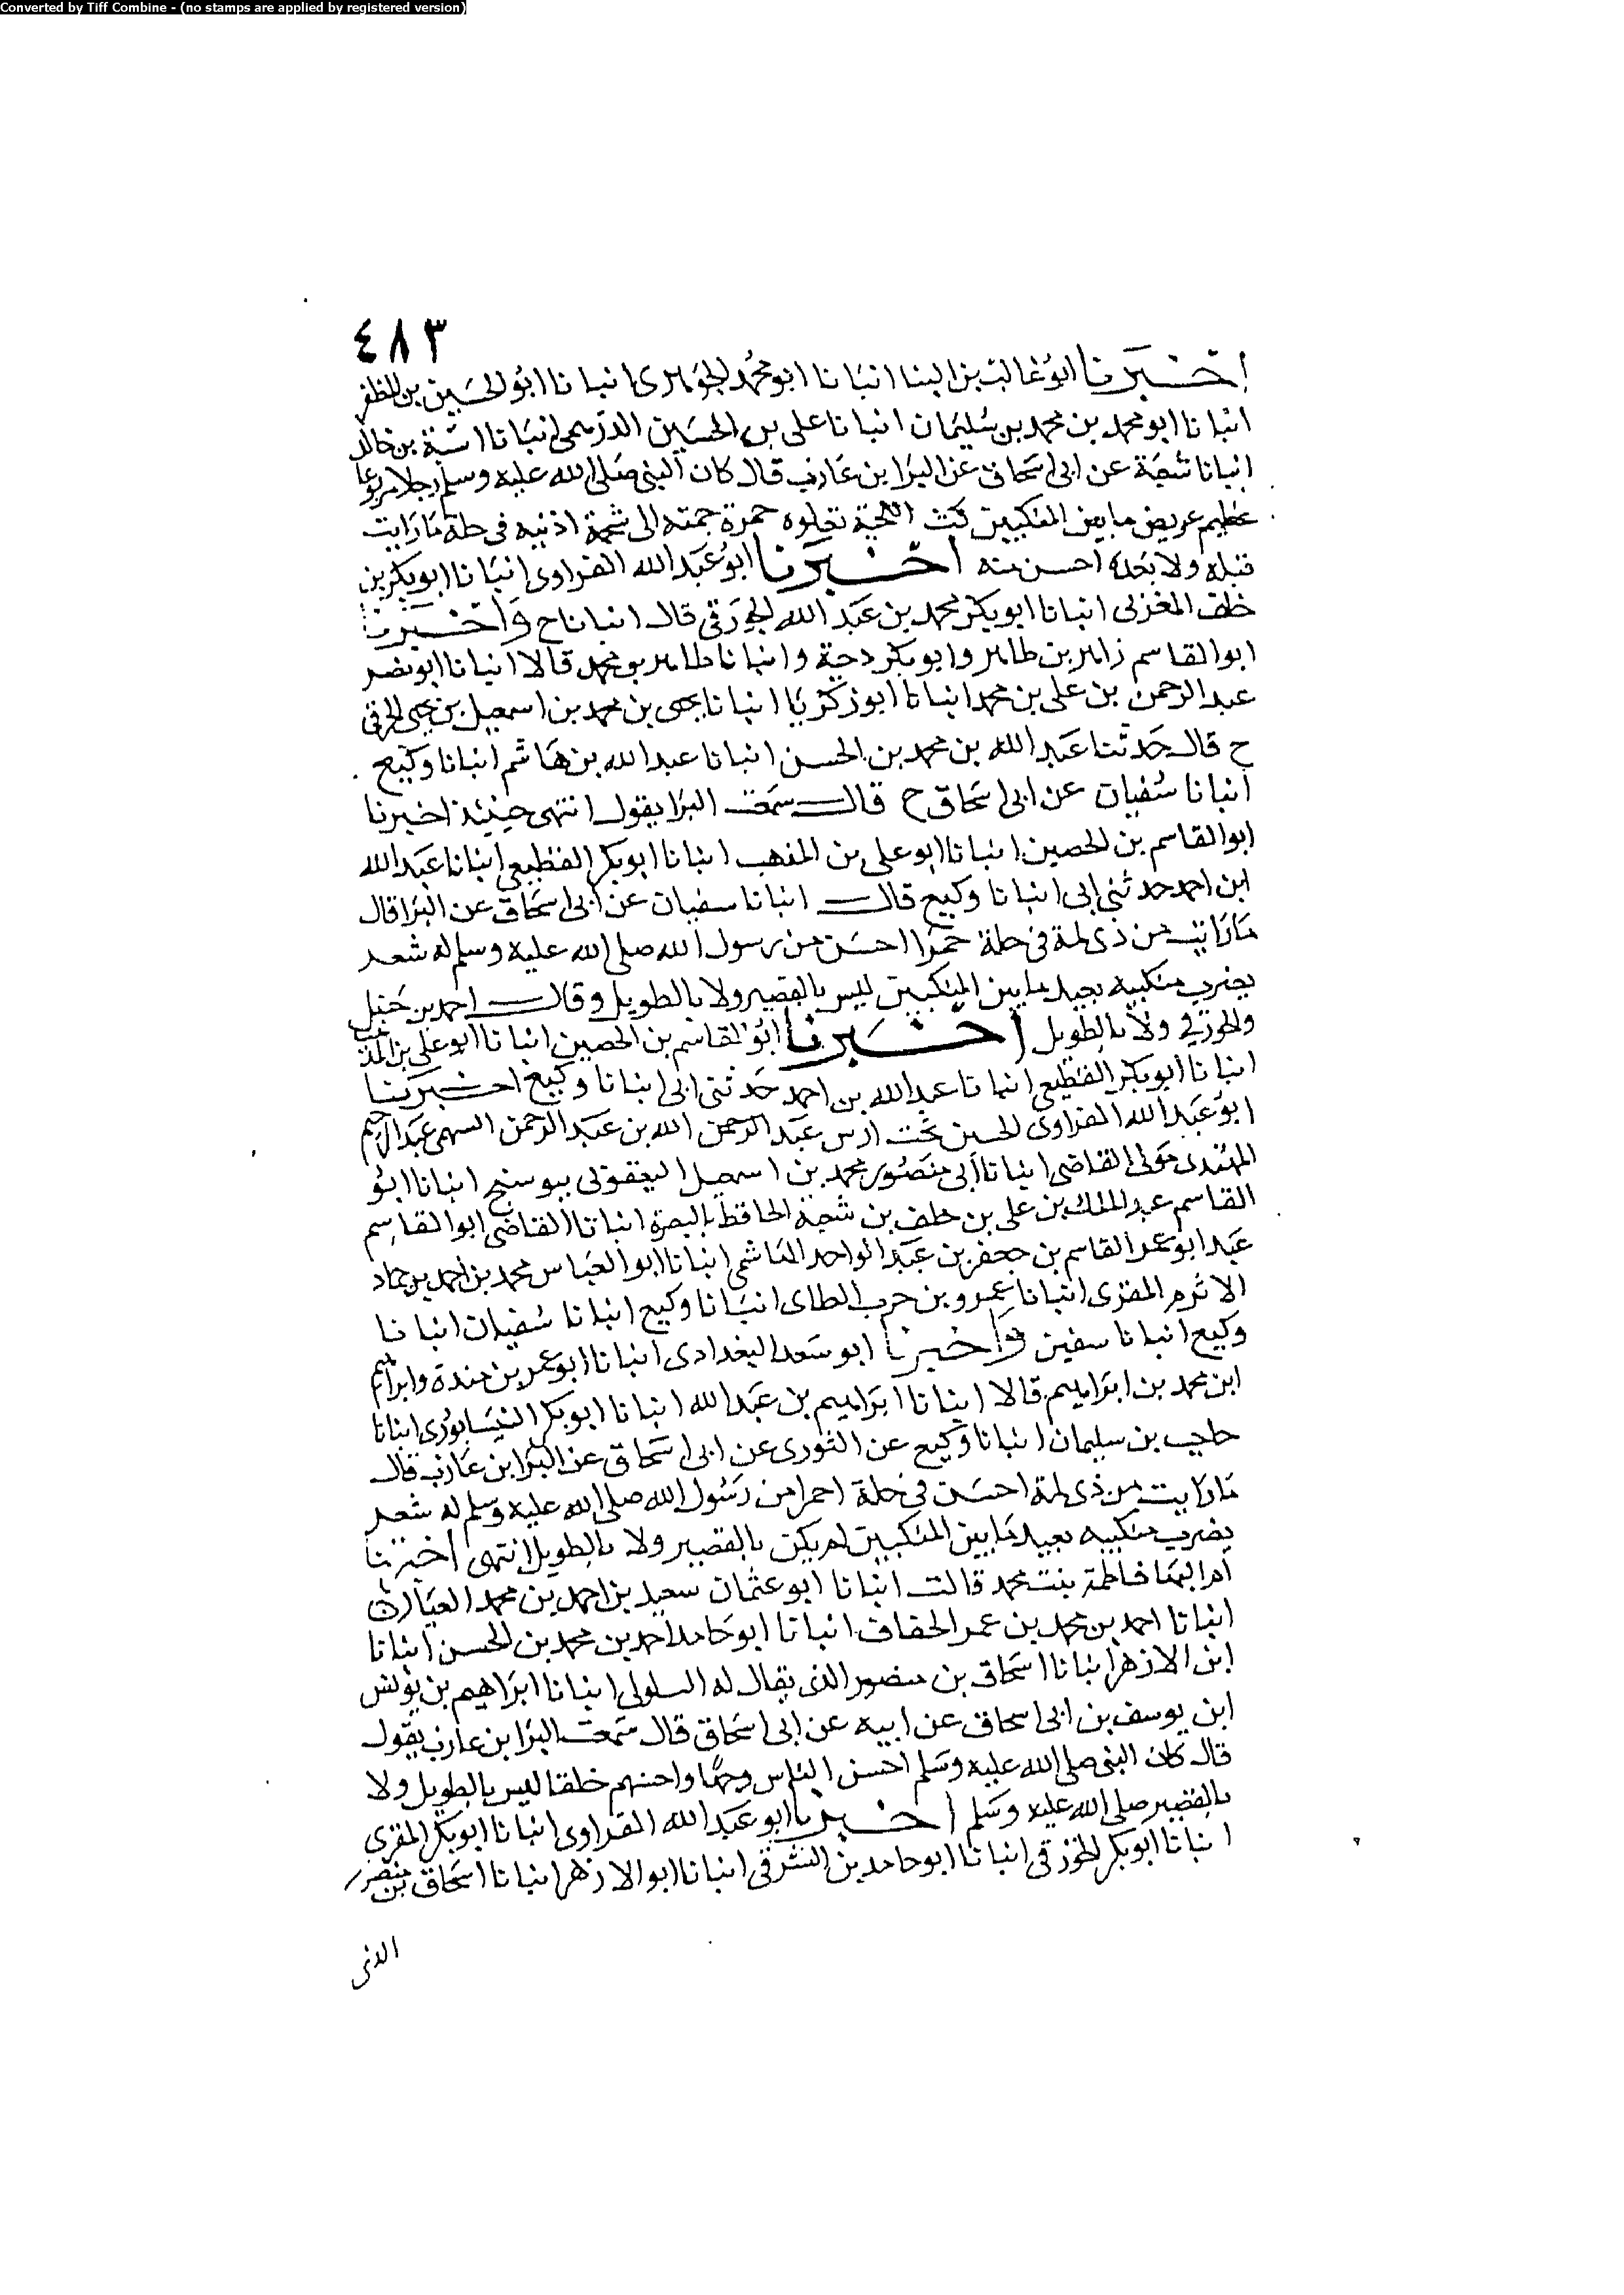 Converted by Tiff Combine - (no stamps are applied by registered version)
٤٨٣
اخبرنا ابو غالب بن البنا انبانا ابو محمد الجوهرى انبانا ابو الحسين بن المظفر
انبانا ابو محمد بن محمد بن سليمان انبانا على بن الحسين الدرهمى انبانا امية بن خالد
انبانا شعبة عن ابى اسحاق عن البرا بن عازب قال كان النبى صلى الله عليه وسلم رجلا مربوعا
عظيم عريض ما بين المنكبين كث اللحية تعلوه حمرة جمته الى شحمة اذنيه فى حلة ما رايت
قبله ولا بعده احسن منه اخبرنا ابو عبد الله الفراوى انبانا ابو بكر بن
خلف المغربى انبانا ابو بكر محمد بن عبد الله الجوزقى قال انبانا ح واخبرنا
ابو القاسم زاهر بن طاهر وابو بكر وانبانا طاهر بن محمد قالا انبانا ابو نصر
عبد الرحمن بن على بن محمد انبانا ابو زكريا انبانا يحيى بن محمد بن اسمعيل بن يحيى الحرقى
ح قال حدثنا عبد الله بن محمد بن الحسن انبانا عبد الله بن هاشم انبانا وكيع
انبانا سفيان عن ابى اسحاق ح قال سمعت البرا يقول انتهى حينئذ اخبرنا
ابو القاسم بن الحصين انبانا ابو على بن المذهب انبانا ابو بكر القطيعى انبانا عبد الله
ابن احمد حدثنى ابى انبانا وكيع قال انبانا سفيان عن ابى اسحاق عن البرا قال
ما رايت من ذى لمة فى حلة حمرا احسن من رسول الله صلى الله عليه وسلم له شعر
يضرب منكبيه بعيد ما بين المنكبين ليس بالقصير ولا بالطويل وقال احمد بن حنبل
والجوزقى ولا بالطويل اخبرنا ابو القاسم بن الحصين انبانا ابو على بن المذهب
انبانا ابو بكر القطيعى انبانا عبد الله بن احمد حدثنى ابى انبانا وكيع اخبرنا
ابو عبد الله الفراوى الحسين عبد الرحمن الله بن عبد الرحمن السهمى عبد الرحيم
المهتدى مولى القاضى انبانا ابى منصور محمد بن اسمعيل اليعقوبى ببوسنج انبانا ابو
القاسم عبد الملك بن على بن خلف بن شعبة الحافظ بالبصرة انبانا القاضى ابو القاسم
عبد ابو عمر القاسم بن جعفر بن عبد الواحد الهاشمى انبانا ابو العباس محمد بن احمد بن حماد
الاثرم المقرى انبانا عمرو بن حرب الطاى انبانا وكيع انبانا سفيان انبانا
وكيع انبانا سفين واخبرنا ابو سعد البغدادى انبانا ابو عمر بن مندة وابراهيم
ابن محمد بن ابراهيم قالا انبانا ابراهيم بن عبد الله انبانا ابو بكر النيسابورى انبانا
حاجب بن سليمان انبانا وكيع عن الثورى عن ابى اسحاق عن البرا بن عازب قال
ما رايت من ذى لمة احسن فى حلة احمرا من رسول الله صلى الله عليه وسلم له شعر
يضرب منكبيه بعيد ما بين المنكبين لم يكن بالقصير ولا بالطويل انتهى اخبرتنا
ام البها فاطمة بنت محمد قالت انبانا ابو عثمان سعيد بن احمد بن محمد العيار
انبانا احمد بن محمد بن عمر الخفاف انبانا ابو حامد احمد بن محمد بن الحسن انبانا
ابن الازهر انبانا اسحاق بن منصور الذى يقال له السلولى انبانا ابراهيم بن يونس
ابن يوسف بن ابى اسحاق عن ابيه عن ابى اسحاق قال سمعت البرا بن عازب يقول
قال كان النبى صلى الله عليه وسلم احسن الناس وجها واحسنهم خلقا ليس بالطويل ولا
بالقصير صلى الله عليه وسلم اخبرنا ابو عبد الله الفراوى انبانا ابو بكر المقرى
انبانا ابو بكر الجوزقى انبانا ابو حامد بن الشرقى انبانا ابو الازهر انبانا اسحاق بن منصور
الذى